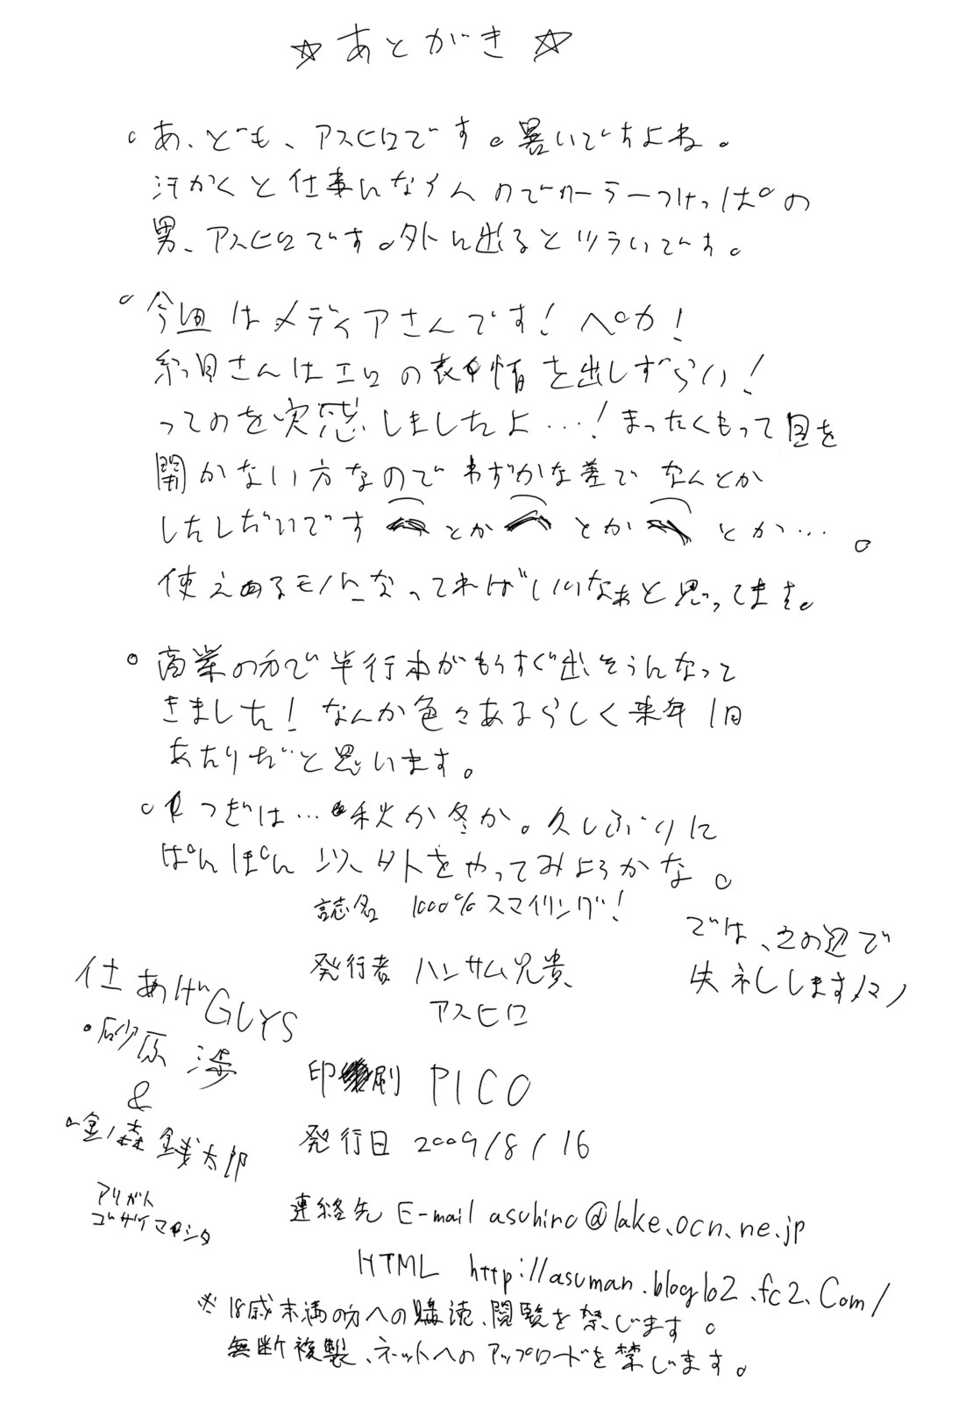 ☆あとがき☆
○あ、ども、アスヒロです。暑いですよね。
汗かくと仕事にならんのでクーラーつけっぱの
男、アスヒロです。外に出るとツライです。
○今回はメディアさんです！ペカ！
糸目さんはエロの表情を出しずらい！
ってのを実感しましたよ…！まったくもって目を
開かない方なのでわずかな差でなんとか
しただしだいです とか とか とか…。
使えるモノになってればいいなぁと思ってます。
○商業の方で単行本がもうすぐ出そうになって
きました！なんか色々あるらしく来年1月
あたりだと思います。
○つぎは…秋か冬か。久しぶりに
ぱんぽん以外をやってみようかな。
では、この辺で
失礼しますノシ
誌名 1000%スマイリング！
発行者 ハンサム兄貴
アスヒロ
印刷 PICO
発行日 2009/8/16
連絡先 E-mail asuhiro@lake.ocn.ne.jp
HTML http://asuman.blog102.fc2.com/
仕あげGUYS
・砂原 渉
&
・金ノ森 銭太郎
アリガト
ゴザイマシタ
※18歳未満の方への購読、閲覧を禁じます。
無断複製、ネットへのアップロードを禁じます。